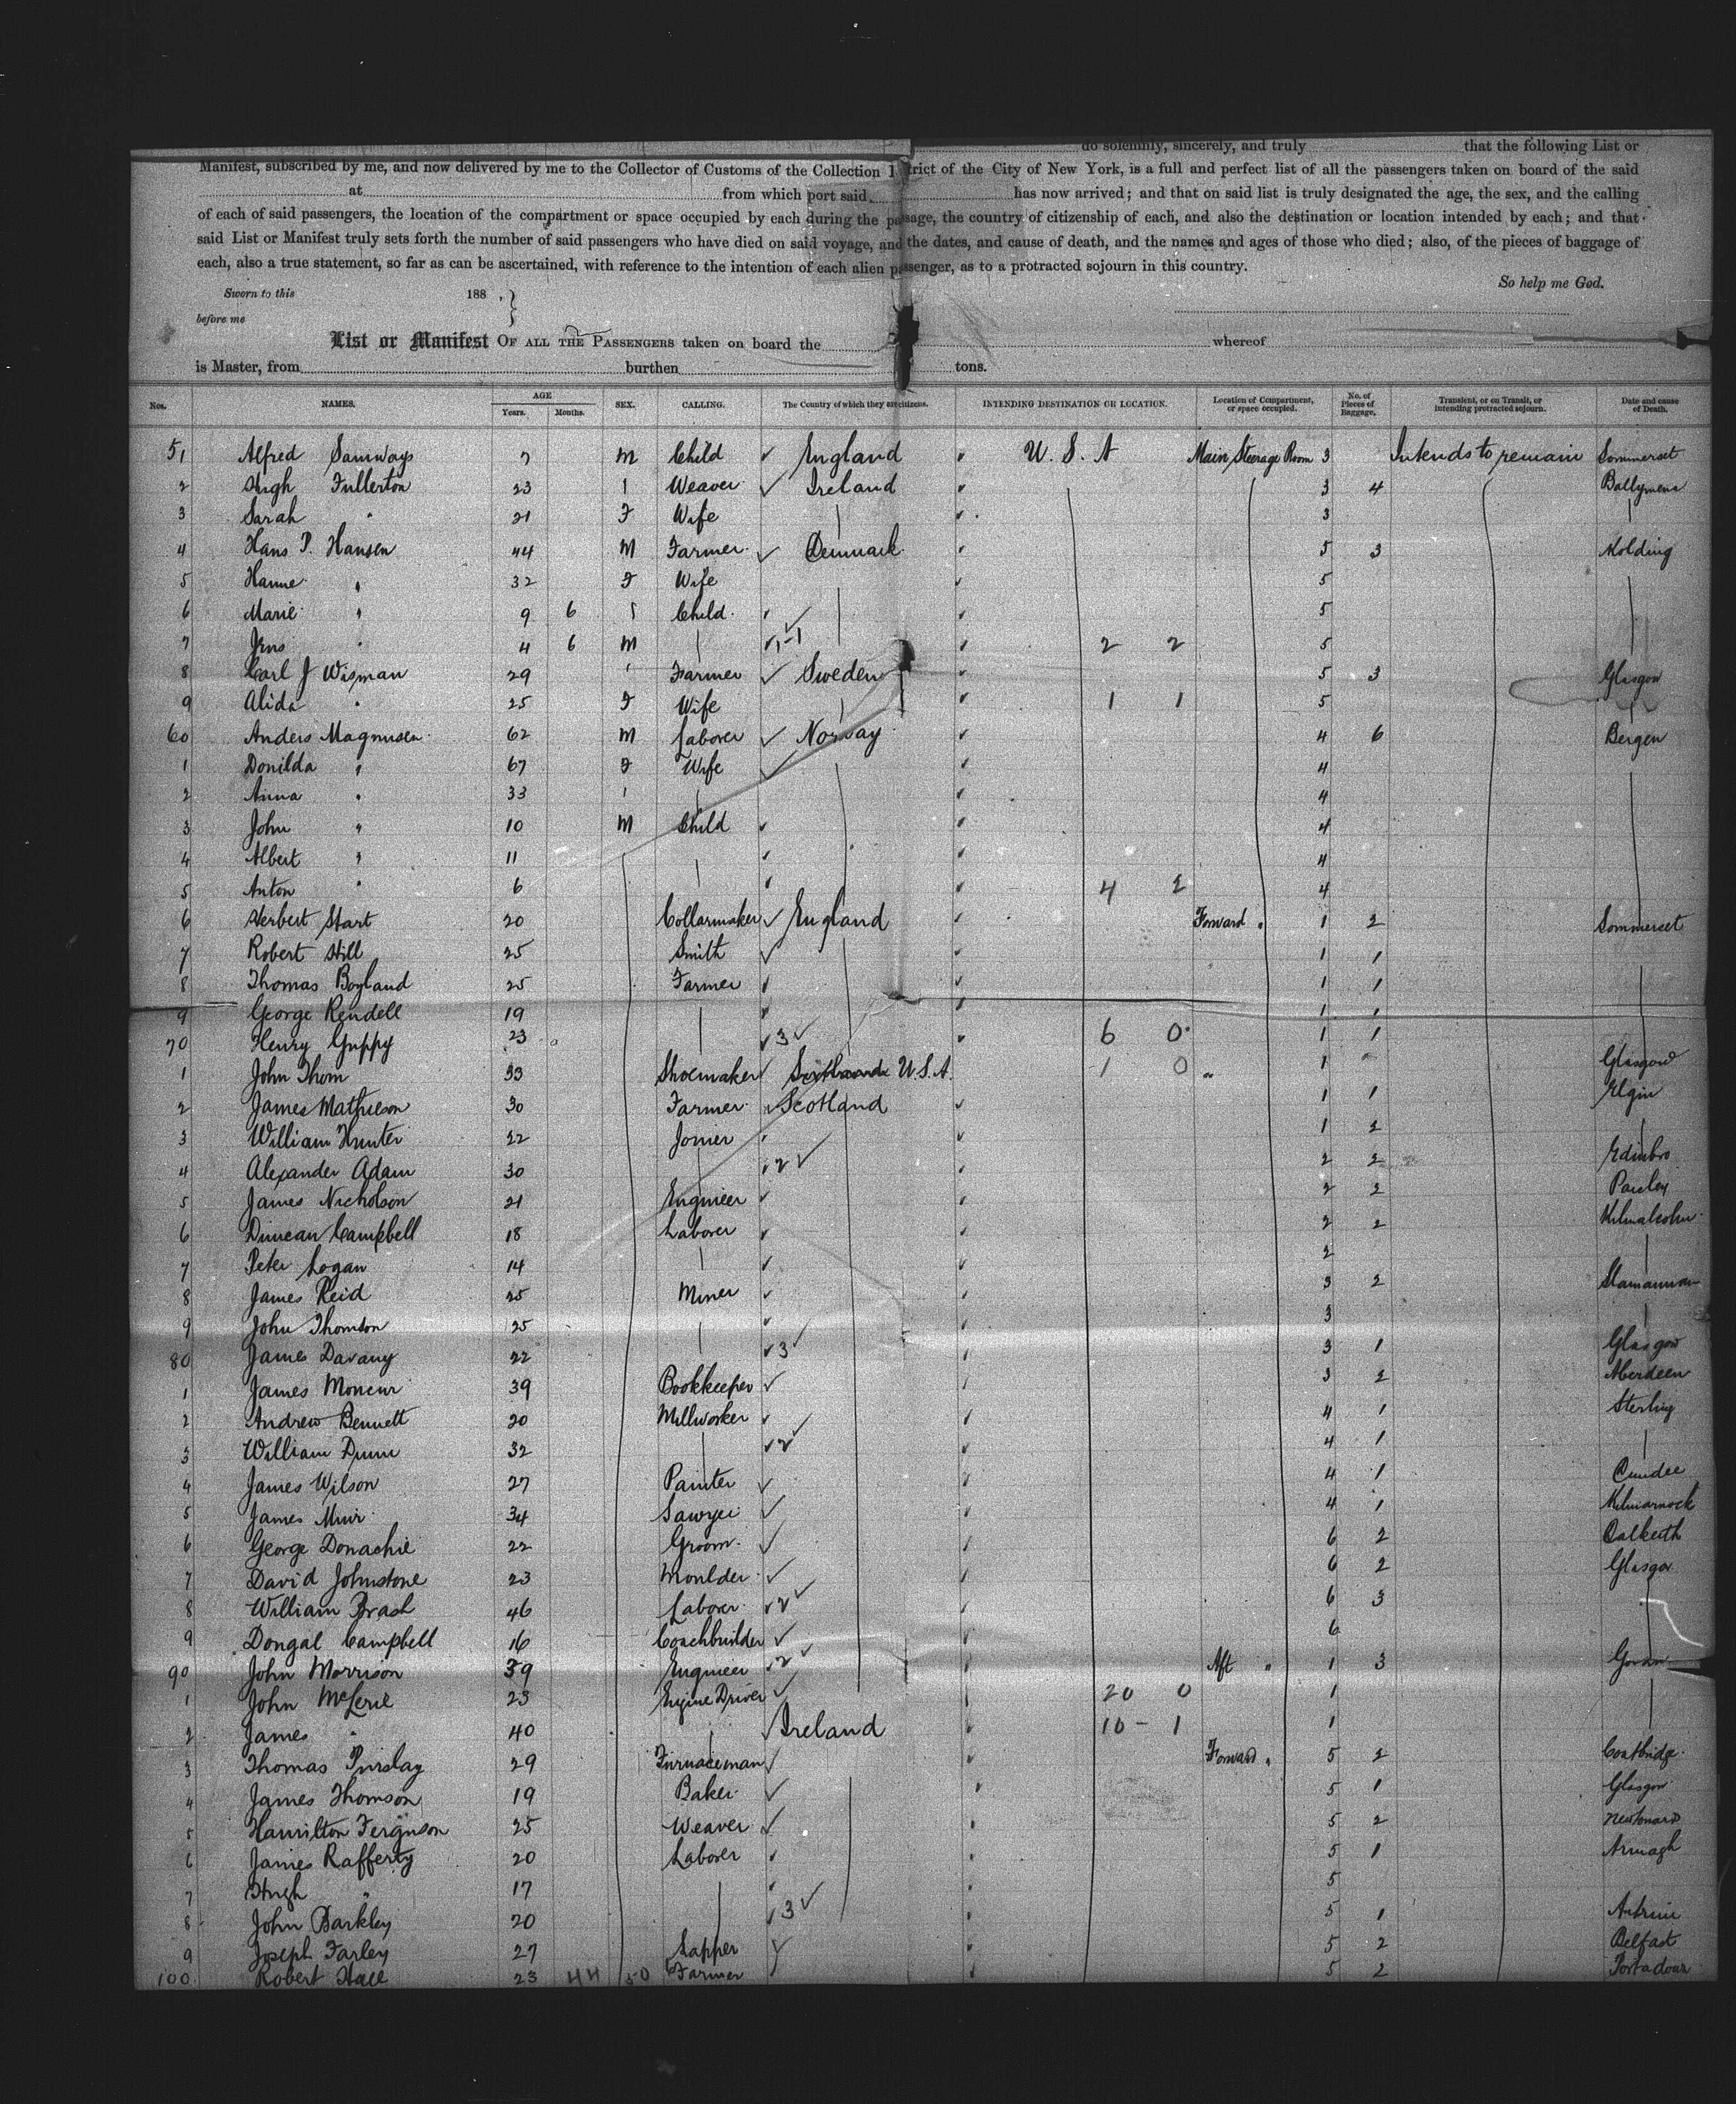 do solemnly, sincerely, and truly that the following List or
Manifest, subscribed by me, and now delivered by me to the Collector of Customs of the Collection trict of the City of New York, is a full and perfect list of all the passengers taken on board of the said
at from which port said has now arrived; and that on said list is truly designated the age, the sex, and the calling
of each of said passengers, the location of the compartment or space occupied by each during the passage, the country of citizenship of each, and also the destination or location intended by each; and that
said List or Manifest truly sets forth the number of said passengers who have died on said voyage, and the dates, and cause of death, and the names and ages of those who died; also, of the pieces of baggage of
each, also a true statement, so far as can be ascertained, with reference to the intention of each alien passenger, as to a protracted sojourn in this country.
So help me God.
Sworn to this 188 . }
before me
List or Manifest OF ALL THE PASSENGERS taken on board the whereof
is Master, from burthen tons.
Nos. NAMES. AGE Years. Months. SEX. CALLING. The Country of which they are citizens. INTENDING DESTINATION OR LOCATION. Location of Compartment, or space occupied. No. of Pieces of Baggage. Transient, or on Transit, or intending protracted sojourn. Date and cause of Death.
51 Alfred Samways 7 M Child ✓ England ✓ U. S. A Main Steerage Room 3 Intends to remain Sommerset
2 Hugh Fullerton 23 Weaver ✓ Ireland ✓ 3 4 Ballymena
3 Sarah " 21 F Wife ✓ 3
4 Hans P. Hansen 44 M Farmer ✓ Denmark ✓ 5 3 Kolding
5 Hanne " 32 F Wife ✓ 5
6 Marie " 9 6 Child ✓ ✓ 5
7 Jens " 4 6 M ✓ 1-1 ✓ 2 2 5
8 Carl J Wisman 29 ' Farmer ✓ Sweden ✓ 5 3 Glasgow
9 Alida " 25 F Wife ✓ 1 1 5
60 Anders Magnusen 62 M Laborer ✓ Norway ✓ 4 6 Bergen
1 Donilda " 67 F Wife ✓ ✓ 4
2 Anna " 33 ' ✓ 4
3 John " 10 M Child ✓ ✓ 4
4 Albert " 11 ✓ ✓ 4
5 Anton " 6 ✓ ✓ 4 2 4
6 Herbert Start 20 Collarmaker ✓ England ✓ Forward " 1 2 Sommerset
7 Robert Hill 25 Smith ✓ ✓ 1 1
8 Thomas Boyland 25 Farmer ✓ ✓ 1 1
9 George Rendell 19 ✓ ✓ 1 1
70 Henry Guppy 23 ✓ 3 ✓ ✓ 6 0 1 1
1 John Thom 33 Shoemaker ✓ Scotland U.S.A. 1 0 " 1 Glasgow
2 James Mathieson 30 Farmer ✓ Scotland ✓ 1 1 Elgin
3 William Hunter 22 Joiner ✓ ✓ 1 2
4 Alexander Adam 30 ✓ 2 ✓ ✓ 2 2 Edinbro
5 James Nicholson 21 Engineer ✓ ✓ 2 2 Paisley
6 Duncan Campbell 18 Laborer ✓ ✓ 2 2 Kilmalcolm
7 Peter Logan 14 ✓ ✓ 2
8 James Reid 25 Miner ✓ ✓ 3 2 Slamannan
9 John Thomson 25 ✓ ✓ 3
80 James Davany 22 ✓ 3 ✓ ✓ 3 1 Glasgow
1 James Moncur 39 Bookkeeper ✓ 3 2 Aberdeen
2 Andrew Bennett 20 Millworker ✓ 4 1 Sterling
3 William Dunn 32 ✓ 2 ✓ 4 1
4 James Wilson 27 Painter ✓ 4 1 Dundee
5 James Muir 34 Sawyer ✓ 4 1 Kilmarnock
6 George Donachie 22 Groom ✓ 6 2 Dalkeith
7 David Johnstone 23 Moulder ✓ 6 2 Glasgow
8 William Brash 46 Laborer ✓ 2 ✓ 6 3
9 Dongal Campbell 16 Coachbuilder ✓ 6
90 John Morrison 39 Engineer ✓ 2 ✓ Aft " 1 3 Govan
1 John McLerie 23 Engine Driver ✓ 20 0 1
2 James " 40 ✓ Ireland 10 - 1 1
3 Thomas Purslay 29 Furnaceman ✓ Forward " 5 2 Coatbridge
4 James Thomson 19 Baker ✓ 5 1 Glasgow
5 Hamilton Ferguson 25 Weaver ✓ 5 2 Newtonards
6 James Rafferty 20 Laborer ✓ 5 1 Armagh
7 Hugh " 17 ✓ 5
8 John Barkley 20 ✓ 3 ✓ 5 1 Antrim
9 Joseph Farley 27 Lapper ✓ 5 2 Belfast
100 Robert Hall 23 44 50 Farmer 5 2 Portadown